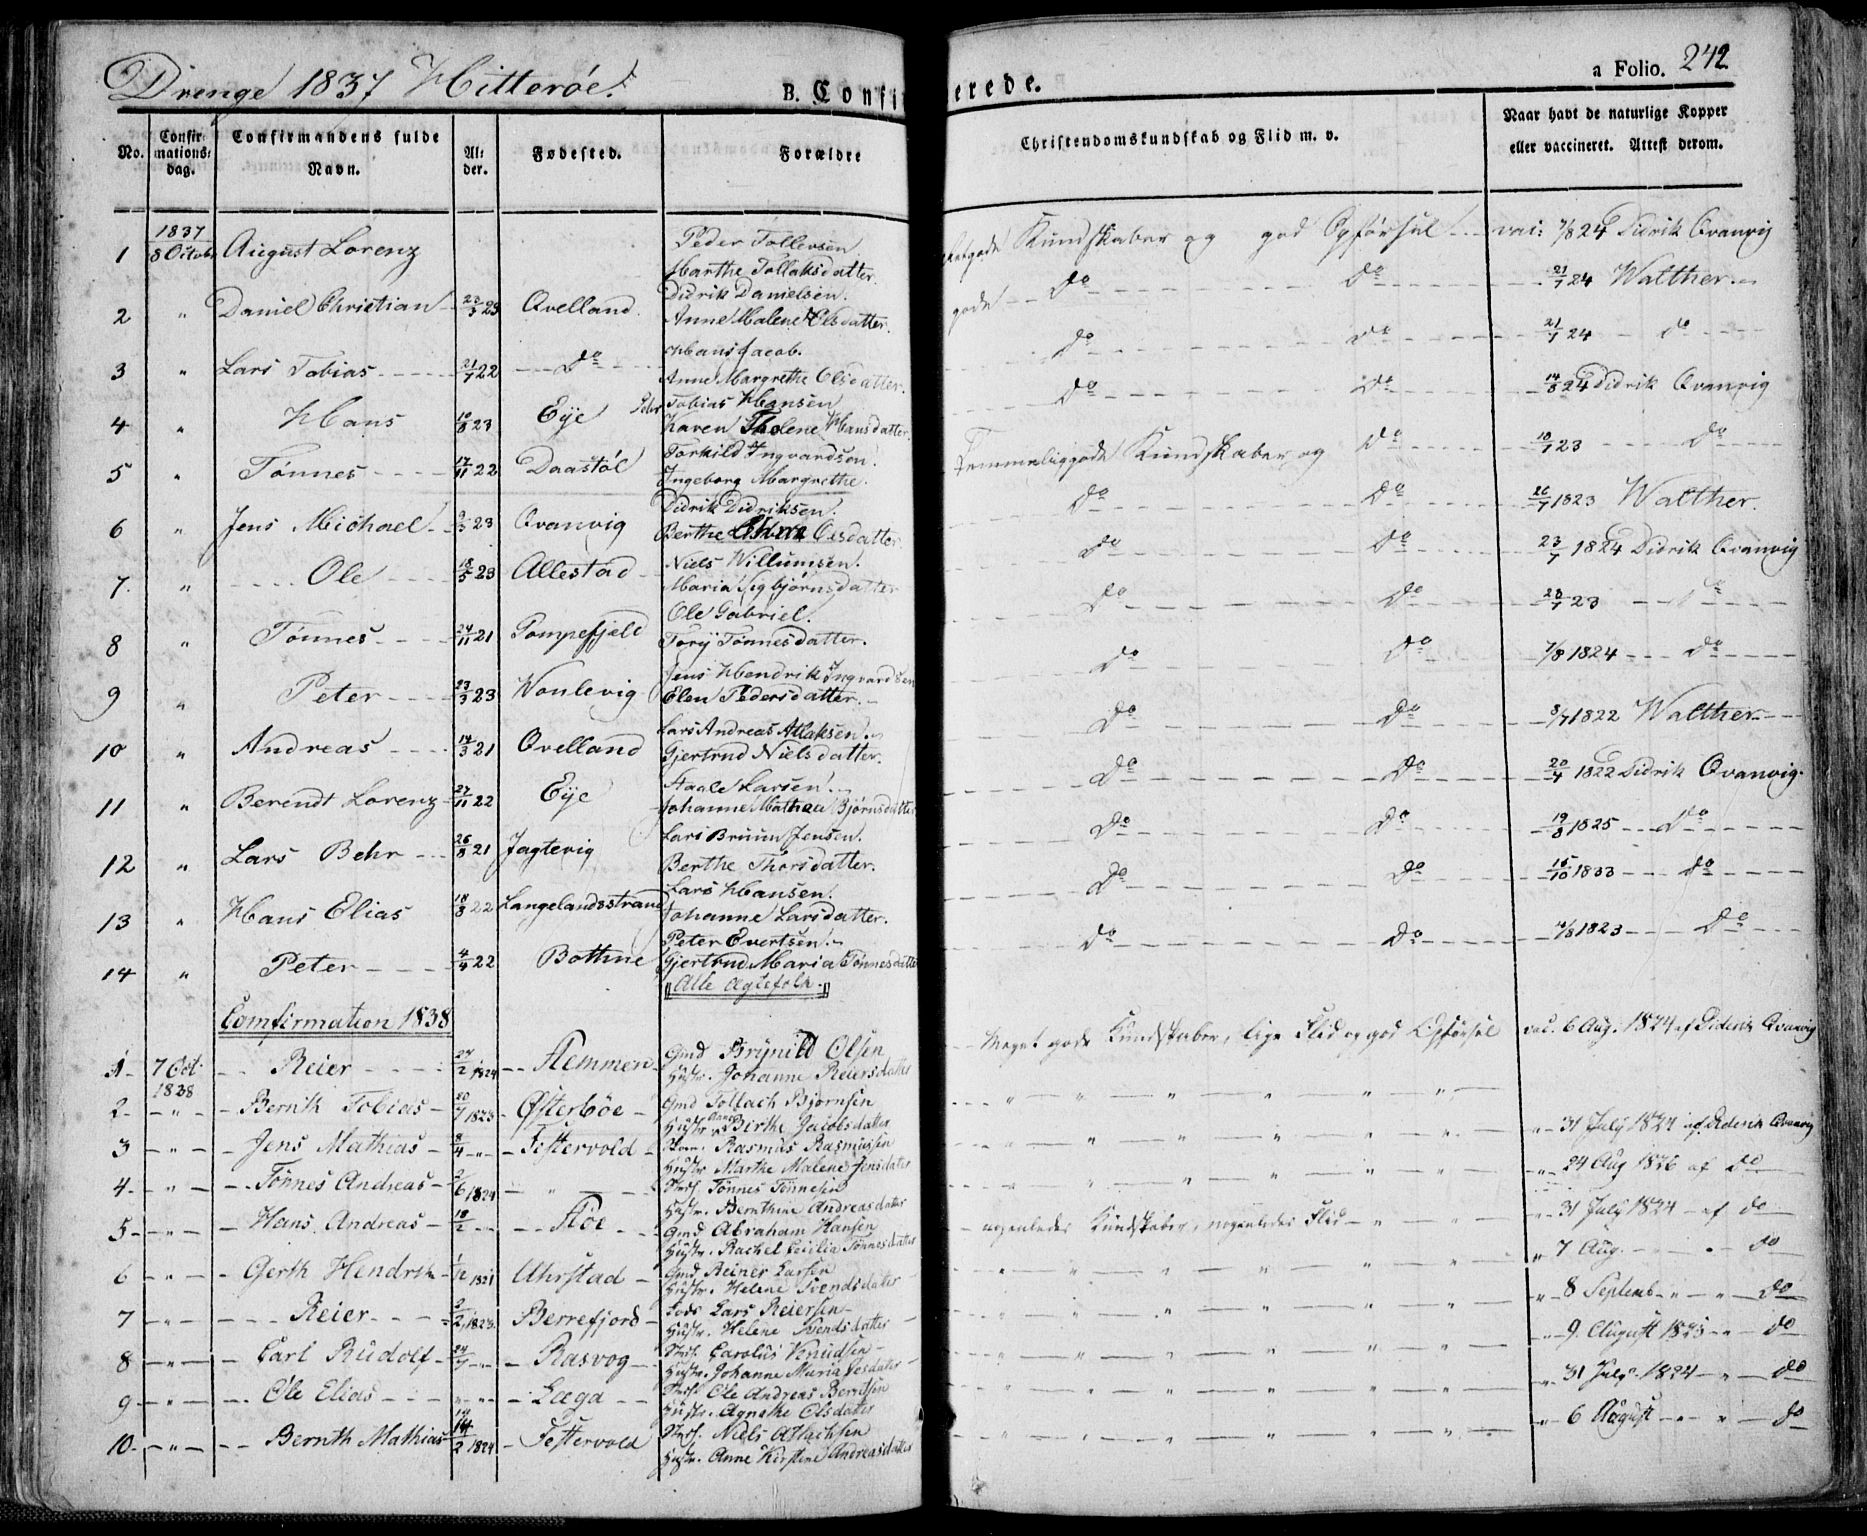 Drenge 1837 Hitterøe.
B. Confirmerede.
a Folio. 242
No. Confirmations: Dag. Confirmandens fulde Navn. Alder. Fødested. Forældre Christendomskundskab og Flid m. v. Naar havt de naturlige Kopper eller vaccineret. Attest derom.
1837
1 8 Octob August Lorenz Peder Tollevsen Kundskaber og god Opførsel vac: 7/8 24 Didrik Qvanvig
Marthe Tollaksdatter
2 " Daniel Christian 23/3 23 Qvelland. Didrik Danielsen. gode Do Do 21/7 24 Walther
Anne Malene Olsdatter.
3 " Lars Tobias 21/7 22 Do Hans Jacob. Do Do 21/7 24 do
Anne Margrethe Olsdatter.
4 " Hans 10/8 23 Eye Tobias Hansen Do Do 14/8 24 Didrik Qvanvig
Karen Tholene Hansdatter
5 " Tønnes 17/11 22 Daastøl Torkild Ingvardsen. Temmeliggode Kundskaber og Do 10/7 23 Do
Ingeborg Margrethe.
6 " Jens Michael 9/5 23 Qvanvig Didrik Didriksen. Do Do 26/7 1823 Walther.
Berthe Olsdatter
7. " Ole 18/5 23 Allestad Niels Willumsen. Do Do 23/7 1824 Didrik Qvanvig
Maria Sigbjørnsdatter
8 " Tønnes 24/11 21 Pompefjeld Ole Gabriel. Do Do 23/7 23 Do
Tory Tønnesdatter.
9 " Peter 23/3 23 Vonlevig Jens Hendrik Ingvardsen Do Do 7/8 1824 Do
Elen Pedersdatter.
10 " Andreas 14/3 21 Qvelland Lars Andreas Atlaksen. Do Do 8/7 1822 Walther
Gjertrud Nielsdatter.
11 " Berendt Lorenz 27/11 22 Eye Staale Larsen. Do Do 20/4 1822 Didrik Qvanvig.
Johanne Mathea Bjørnsdatter
12 " Lars Behr 26/8 21 Jagtevig Lars Bruun Jensen. Do Do 19/8 1825 Do
Berthe Thorsdatter.
13 " Hans Elias 18/8 22 Langelandsstrand Lars Hansen. Do Do 15/10 1833 Do
Johanne Larsdatter.
14 " Peter 4/4 22 Bothne Peter Evertsen. Do Do 4/8 1823 Do
Gjertrud Maria Tønnesdatter
Alle Ægtefolk.
Comfirmation 1838
1 7 Oct. 1838 Reier 24/2 1824 Flemmen Gmd Brynild Olsen Meget gode Kundskaber, lige Flid og god Opførsel vac. 6 Aug. 1824 af Diderik Qvanvig
Hustr. Johanne Reiersdatter
2 " Bernth Tobias 20/7 1823 Østerbøe Gmd Tollach Bjørnsen " " " "
Hustr. Anne Birthe Jacobsdatter
3 " Jens Mathias 8/4 " Festervold Rasmus Rasmussen " " " " " 31 July 1824 af Diderik Qvanvig
Hustr Marthe Malene Jensdater
4 " Tønnes Andreas 2/6 1824 " Tønnes Tønnesen " " " " 24 Aug 1826 af Do
Hustr. Bernthine Andreasdater
5 " Hans Andreas 18/2 " Floe Gmd Abraham Hansen nogenledes Kundskaber, nogenledes Flid " " 31 July 1824 af do
Hustr. Rachel Cecilia Tønnesdatter
6 " Gerth Hendrik 1/12 1821 Uhrstad Gmd Reiner Larsen " " " " " " 7 Aug. do
Hustr. Helene Svendsdater
7 " Reier 2/2 1823. Berrefjord Lars Reiersen " " " " " 8 Septemb " " Do
Hustr. Helene Svendsdatter
8 " Carl Rudolf 24/7 " Rasvog Carolus Knudsen " " " " " 9 August 1825 " Do
Hustr. Johanne Maria
9 " Ole Elias " " Læga Ole Andreas Berntsen " " " " " 31 July 1824 " do
Hustr. Agnethe Olsdatter
10 " Bernth Mathias 14/2 1824 Festervold Niels Atlachsen " " " " " 6 August " " do
Hustr. Anne Kirstine Andreasdatter